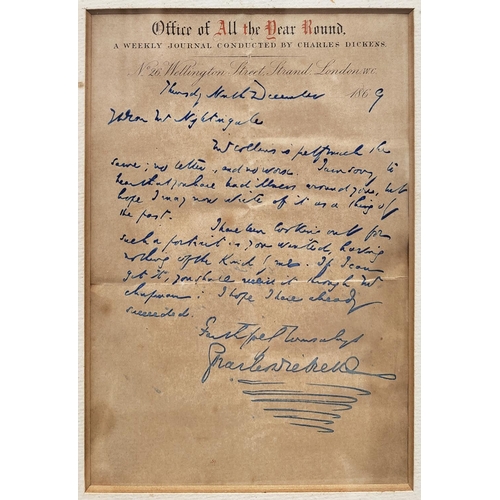 Office of All the Year Round.
A WEEKLY JOURNAL CONDUCTED BY CHARLES DICKENS.
No. 26, Wellington Street, Strand, London. W.C.
Thursday Ninth December 1869
My Dear Mr Nightingale
Mr Collins is pretty much the
same; no better, and no worse. I am sorry to
hear that you have had illness around you, but
hope I may now write of it as a thing of
the past.
I have been looking out for
such a portrait as you wanted, having
nothing of the kind by me. If I can
get it, you shall receive it through Mr
Chapman. I hope I have already
succeeded.
Faithfully Yours always
Charles Dickens